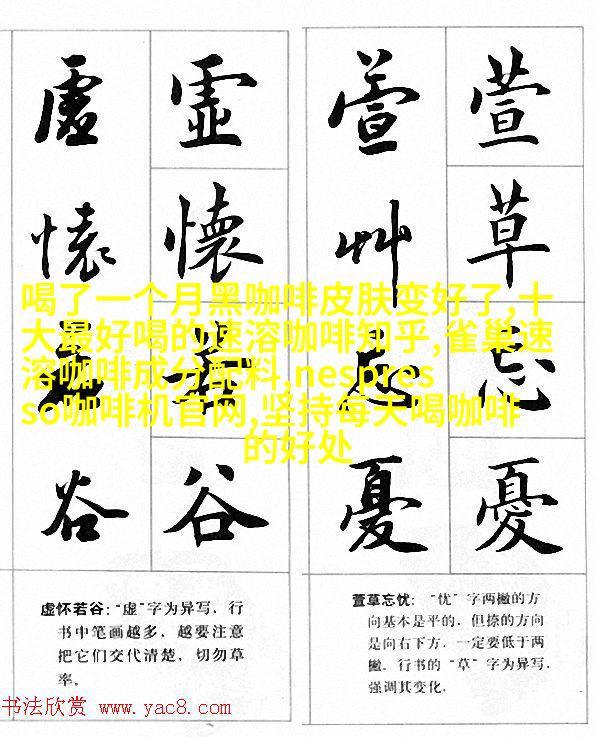 虛懷若谷
虛懷若谷
萱艸忘憂
萱草忘憂
喝了一个月黑咖啡皮肤变好了,十
大最好喝的速溶咖啡知乎,雀巢速
溶咖啡成分配料,nespres
so咖啡机官网,坚持每天喝咖啡
的好处
虚怀若谷:“虚”字为异写，行
书中笔画越多，越要注意
把它们交代清楚，切勿草
率。
萱草忘忧：“忧”字两撇的方
向基本是平的，但捺的方向
是向右下方，一定要低于两
撇。行书的“草”字为异写，
强调其变化。
书法欣赏 www.yac8.com